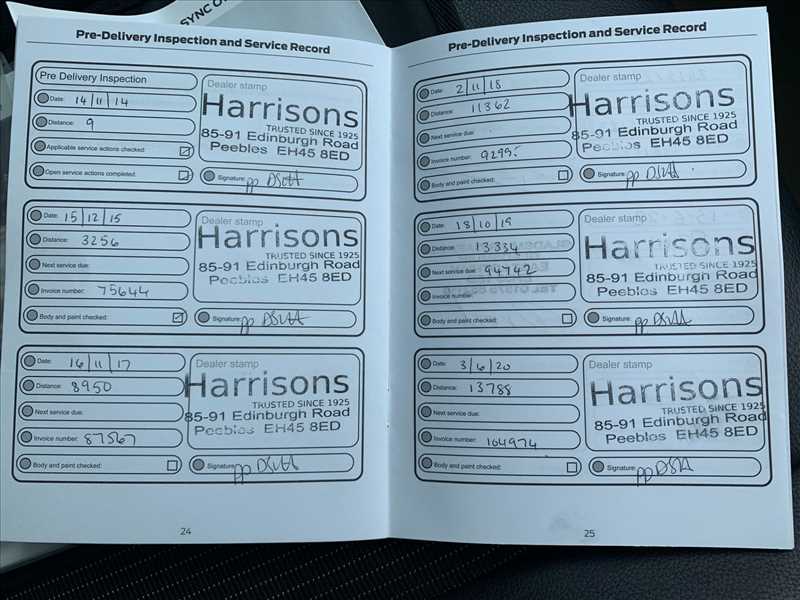 SYNC
Pre-Delivery Inspection and Service Record
Pre Delivery Inspection
Date: 14/11/14
Distance: 9
Applicable service actions checked:
Open service actions completed:
Dealer stamp
Harrisons
TRUSTED SINCE 1925
85-91 Edinburgh Road
Peebles EH45 8ED
Signature: pp
Date: 15/12/15
Distance: 3256
Next service due:
Invoice number: 75644
Body and paint checked:
Dealer stamp
Harrisons
TRUSTED SINCE 1925
85-91 Edinburgh Road
Peebles EH45 8ED
Signature: pp
Date: 16/11/17
Distance: 8950
Next service due:
Invoice number: 87567
Body and paint checked:
Dealer stamp
Harrisons
TRUSTED SINCE 1925
85-91 Edinburgh Road
Peebles EH45 8ED
Signature: pp
24
Pre-Delivery Inspection and Service Record
Date: 2/11/18
Distance: 11362
Next service due:
Invoice number:
Body and paint checked:
Dealer stamp
Harrisons
TRUSTED SINCE 1925
85-91 Edinburgh Road
Peebles EH45 8ED
Signature: pp
Date: 18/10/19
Distance: 13334
Next service due: 94742
Invoice number:
Body and paint checked:
Dealer stamp
Harrisons
TRUSTED SINCE 1925
85-91 Edinburgh Road
Peebles EH45 8ED
Signature: pp
Date: 3/6/20
Distance: 13788
Next service due:
Invoice number: 104974
Body and paint checked:
Dealer stamp
Harrisons
TRUSTED SINCE 1925
85-91 Edinburgh Road
Peebles EH45 8ED
Signature: pp
25